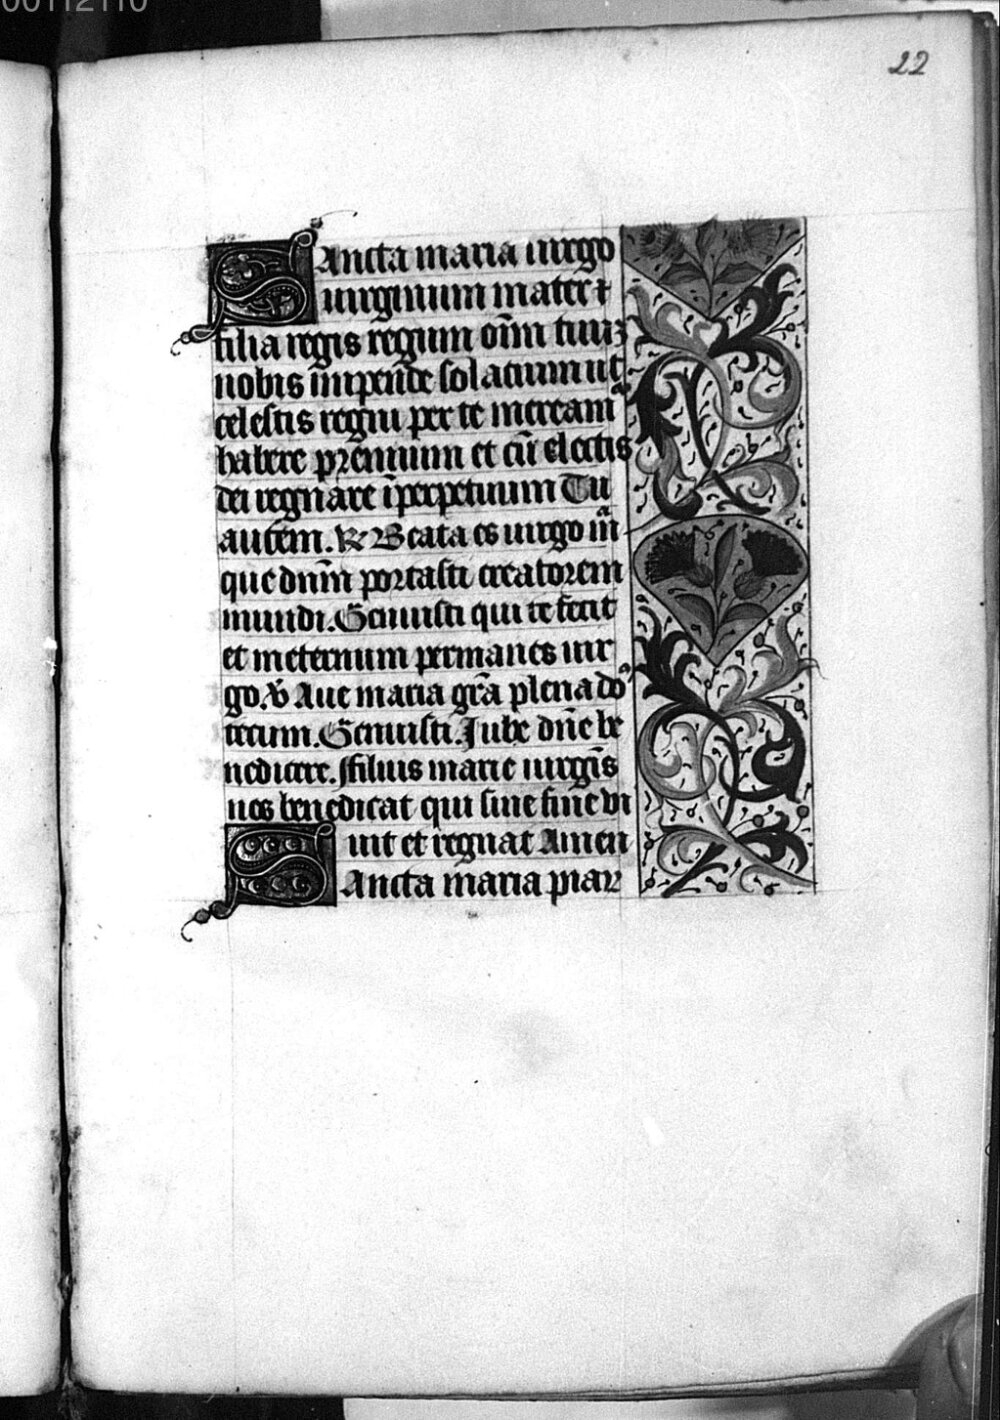 00112110
22
Sancta maria uirgo
uirginum mater ⁊
filia regis regum om̄ tuuꝫ
nobis impende solacium ut
celestis regni per te mereamr
habere premium et cū electis
dei regnare ī perpetuum Tu
autem. ℟ Beata es uirgo mᵃ
que dnm̄ portasti creatorem
mundi. Genuisti qui te fecit
et ineternum permanes uir
go. ℣ Aue maria grā plena doˢ
tecum. Genuisti. Jube dn̄e be
nedicere. Filius marie uirgīs
nos benedicat qui sine fine vi
uit et regnat Amen
Sancta maria piaꝝ